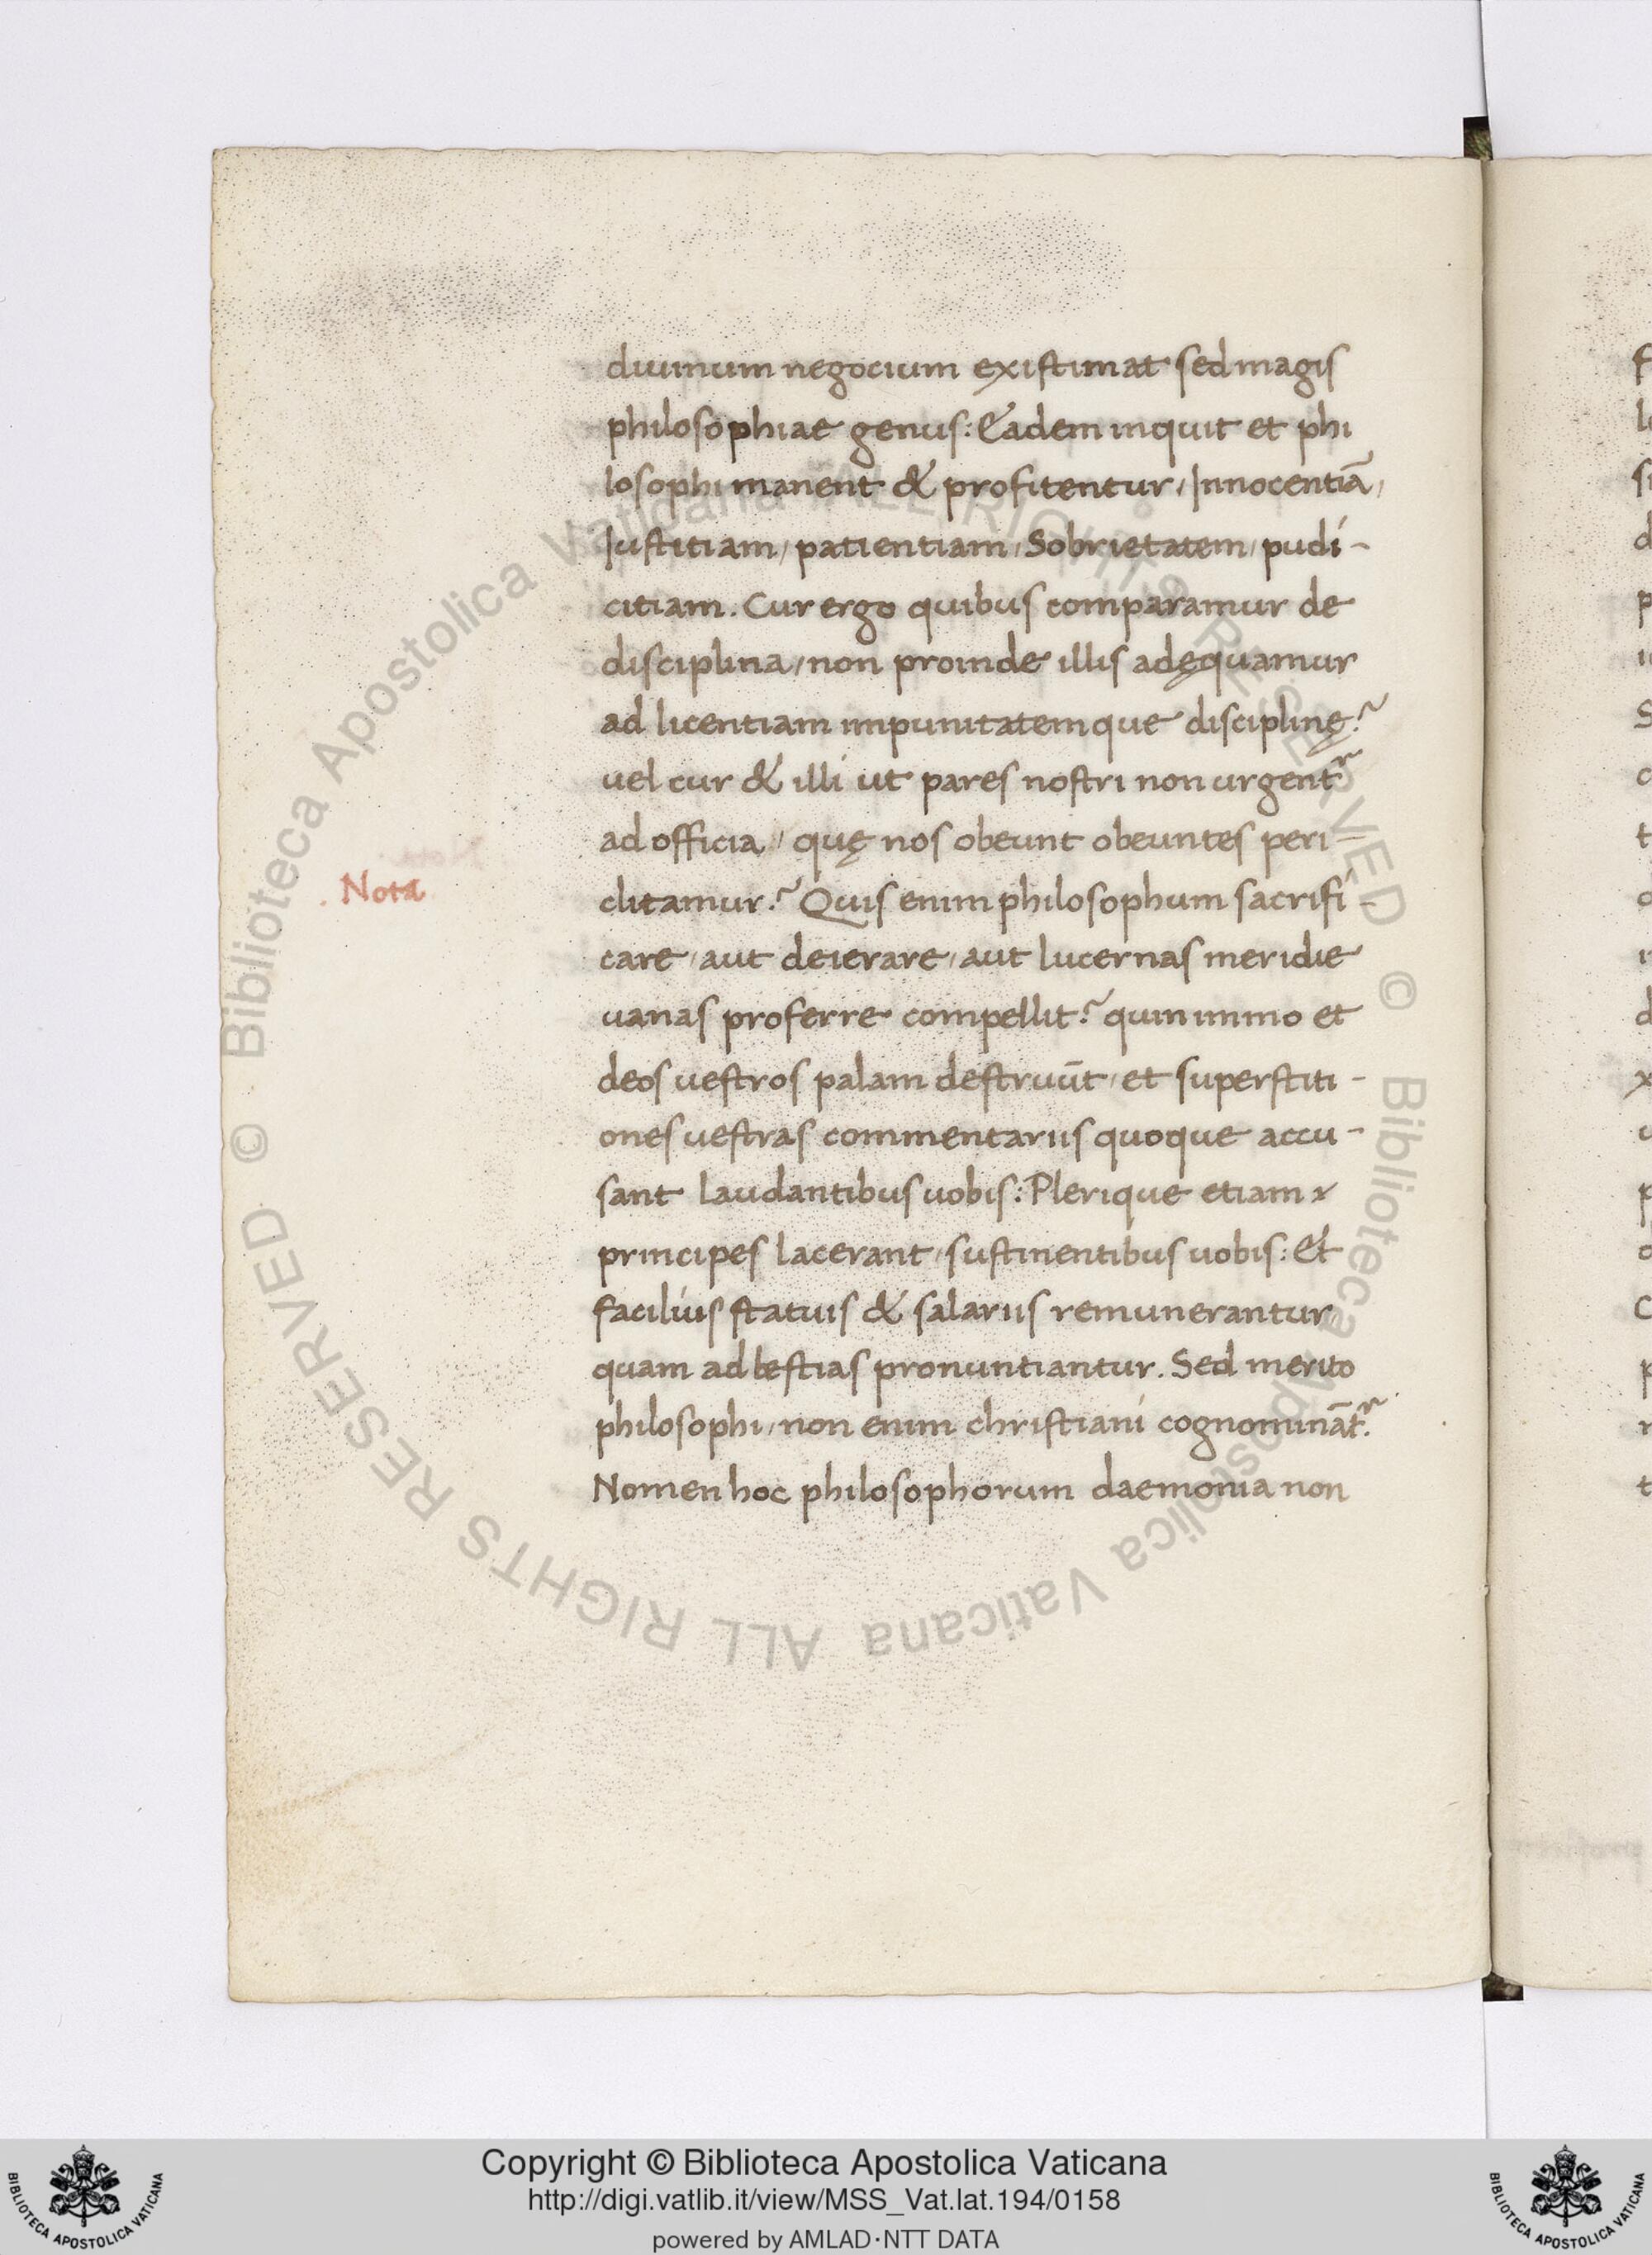 diuinum negocium existimat sed magis
philosophiae genus: Eadem inquit et phi
losophi manent & profitentur, Innocentiā,
Iustitiam, patientiam, Sobrietatem, pudi-
citiam. Cur ergo quibus comparamur de
disciplina, non proinde illis adęquamur
ad licentiam impunitatemque disciplinę?
uel cur & illi ut pares nostri non urgentr
ad officia, quę nos obeunt obeuntes peri-
clitamur? Quis enim philosophum sacrifi-
Nota
care, aut deierare, aut lucernas meridie
uanas proferre compellit? quin immo et
deos uestros palam destruūt, et superstiti-
ones uestras commentariis quoque accu-
sant laudantibus uobis: Plerique etiam
principes lacerant, sustinentibus uobis: Et
facilius statuis & salariis remunerantur,
quam ad bestias pronuntiantur. Sed merito
philosophi, non enim christiani cognominātr.
Nomen hoc philosophorum daemonia non
Copyright © Biblioteca Apostolica Vaticana
http://digi.vatlib.it/view/MSS_Vat.lat.194/0158
powered by AMLAD·NTT DATA
BIBLIOTECA APOSTOLICA VATICANA
BIBLIOTECA APOSTOLICA VATICANA
© Biblioteca Apostolica Vaticana ALL RIGHTS RESERVED © Biblioteca Apostolica Vaticana ALL RIGHTS RESERVED